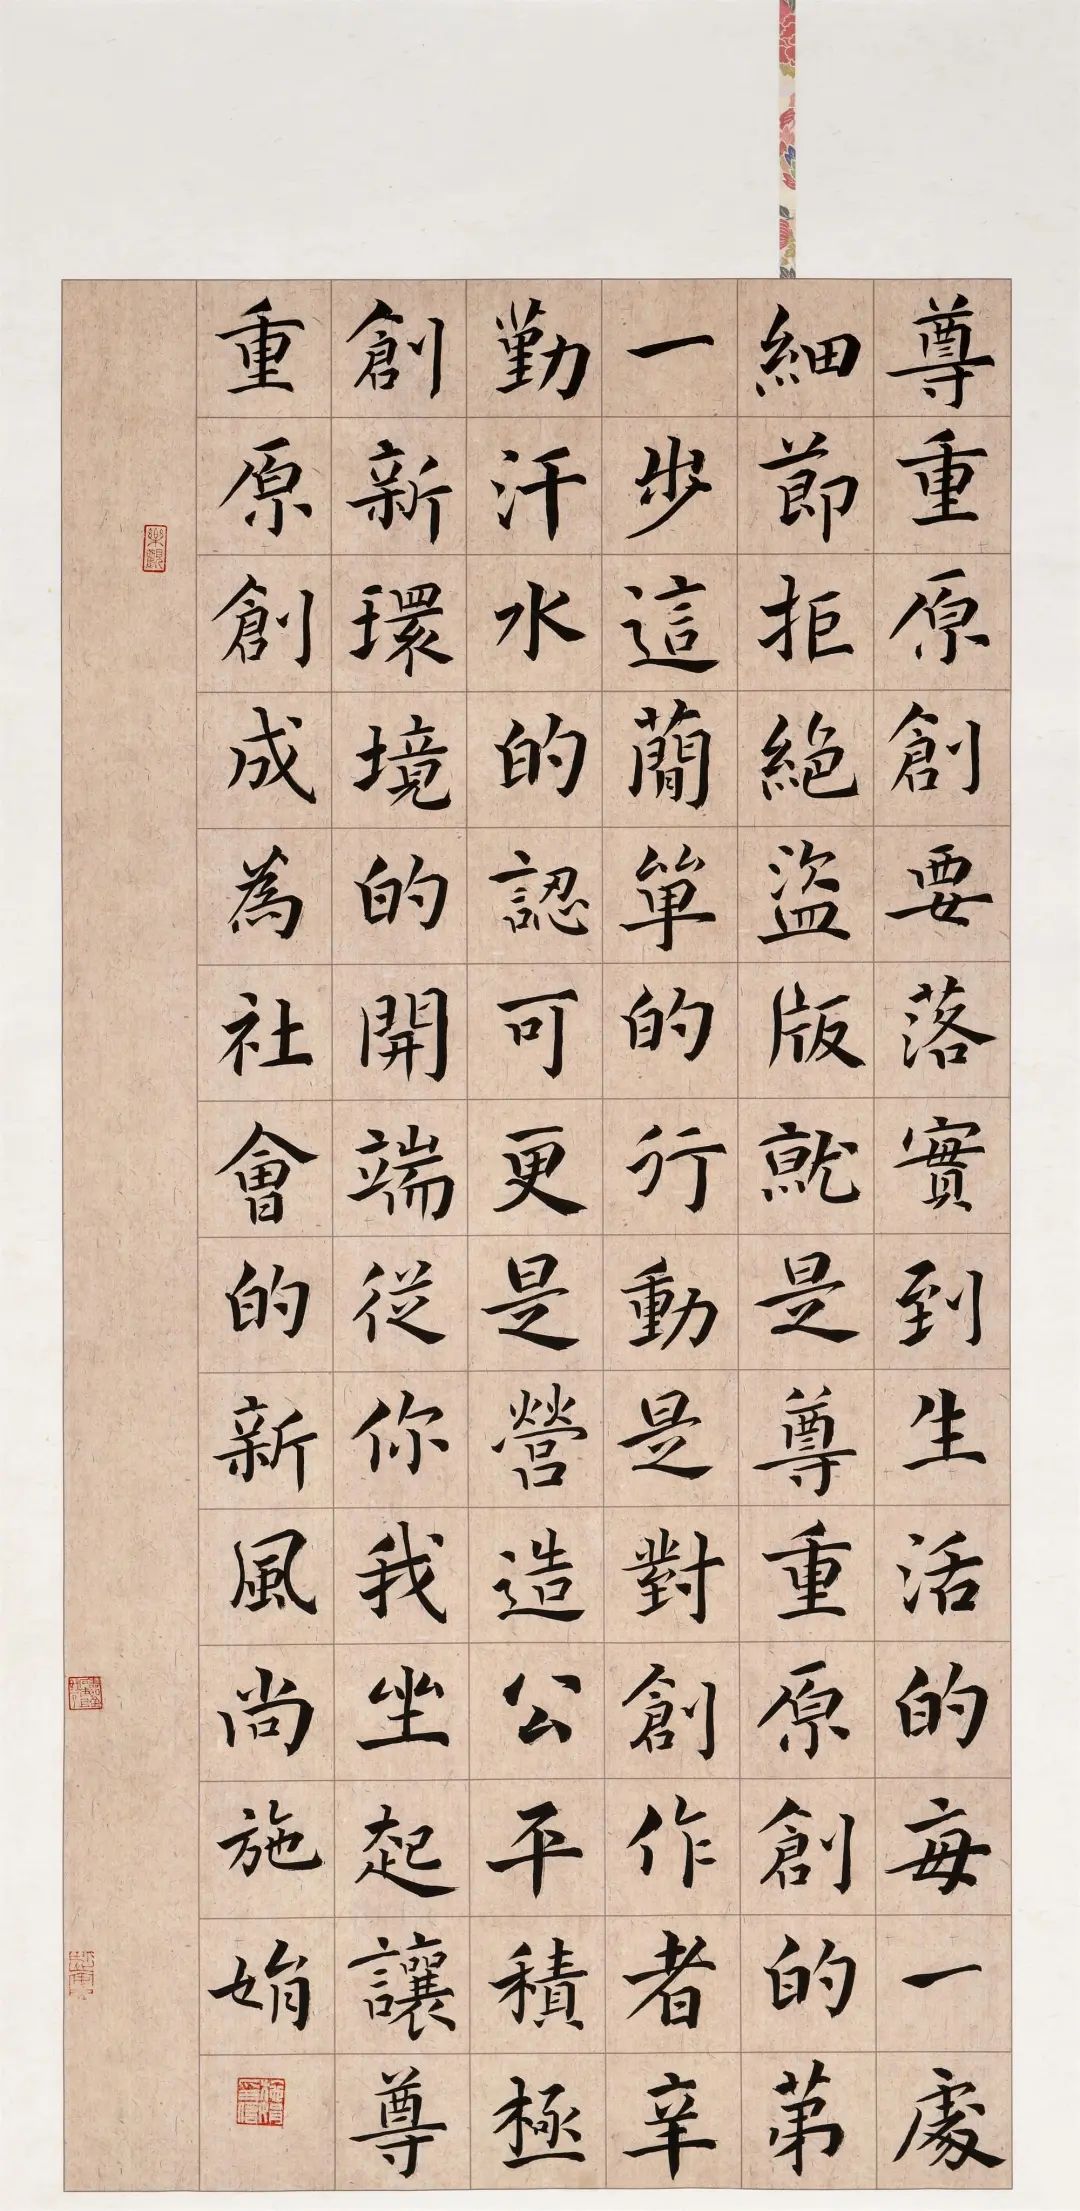 尊重原創要落實到生活的每一處
細節拒絕盜版就是尊重原創的第
一步這簡單的行動是對創作者辛
勤汗水的認可更是營造公平積極
創新環境的開端從你我坐起讓尊
重原創成為社會的新風尚施娟
樂觀